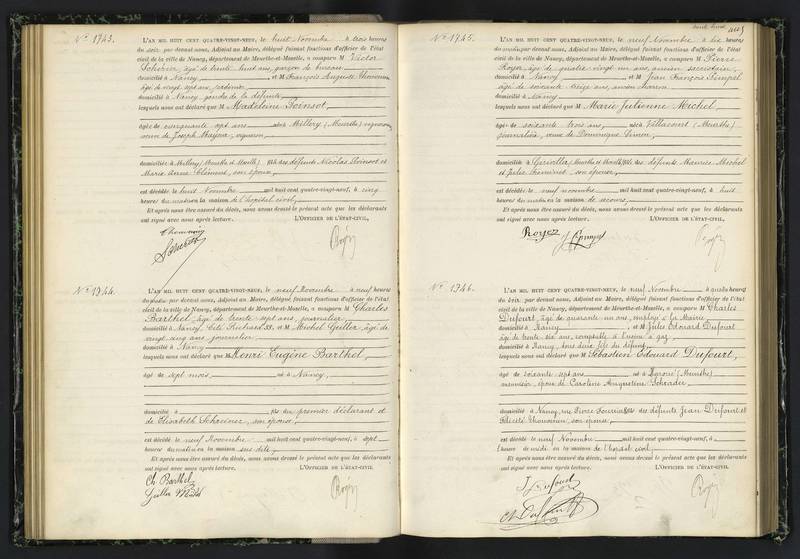 N° 1743.
L'AN MIL HUIT CENT QUATRE-VINGT-NEUF, le huit Novembre à trois heures
du soir par devant nous, Adjoint au Maire, délégué faisant fonctions d'officier de l'état
civil de la ville de Nancy, département de Meurthe-et-Moselle, a comparu M Victor
âgé de trente huit ans, garçon de bureau
domicilié à Nancy et M François Auguste Thouvenin
âgé de vingt sept ans, jardinier
domicilié à Nancy, gendre de la défunte
lesquels nous ont déclaré que M Madeleine Poinsot
âgée de cinquante sept ans née à Millery (Meurthe) vigneronne
veuve de Joseph Mayeur, vigneron
domiciliée à Millery (Meurthe et Moselle) fille des défunts Nicolas Poinsot et
Marie Anne Clément, son épouse
est décédée le huit Novembre mil huit cent quatre-vingt-neuf, à cinq
heures du matin en la maison de l'hôpital civil,
Et après nous être assuré du décès, nous avons dressé le présent acte que les déclarants
ont signé avec nous après lecture. L'OFFICIER DE L'ÉTAT-CIVIL,
Thouvenin
N° 1744.
L'AN MIL HUIT CENT QUATRE-VINGT-NEUF, le neuf Novembre à neuf heures
du matin par devant nous, Adjoint au Maire, délégué faisant fonctions d'officier de l'état
civil de la ville de Nancy, département de Meurthe-et-Moselle, a comparu M Charles
Barthel, âgé de trente sept ans, journalier
domicilié à Nancy, Cité 33, et M Michel Guiller, âgé de
vingt cinq ans journalier
domicilié à Nancy
lesquels nous ont déclaré que M Henri Eugène Barthel,
âgé de sept mois né à Nancy,
domicilié à fils du premier déclarant et
de Elisabeth Schreiner, son épouse
est décédé le neuf Novembre mil huit cent quatre-vingt-neuf, à sept
heures du matin en la maison sus dite
Et après nous être assuré du décès, nous avons dressé le présent acte que les déclarants
ont signé avec nous après lecture. L'OFFICIER DE L'ÉTAT-CIVIL
Ch Barthel
N° 1745.
L'AN MIL HUIT CENT QUATRE-VINGT-NEUF, le neuf Novembre à dix heures
du matin par devant nous, Adjoint au Maire, délégué faisant fonctions d'officier de l'état
civil de la ville de Nancy, département de Meurthe-et-Moselle, a comparu M Pierre
Royer, âgé de quatre vingt un ans, ancien secrétaire,
domicilié à Nancy et M Jean François
âgé de soixante seize ans, ancien charron
domicilié à Nancy
lesquels nous ont déclaré que M Marie Julienne Michel,
âgée de soixante trois ans, née à Villacourt (Meurthe)
journalière, veuve de Dominique Simon,
domiciliée à Gerviller, Meurthe et Moselle, fille des défunts Maurice Michel
et Julie son épouse,
est décédée le neuf novembre mil huit cent quatre-vingt-neuf, à huit
heures du matin en la maison de secours,
Et après nous être assuré du décès, nous avons dressé le présent acte que les déclarants
ont signé avec nous après lecture. L'OFFICIER DE L'ÉTAT-CIVIL,
Royer
N° 1746.
L'AN MIL HUIT CENT QUATRE-VINGT-NEUF, le neuf Novembre à quatre heures
du soir par devant nous, Adjoint au Maire, délégué faisant fonctions d'officier de l'état
civil de la ville de Nancy, département de Meurthe-et-Moselle, a comparu M Charles
Dufourt, âgé de quarante un ans, employé à la Mairie
domicilié à Nancy, et M Jules Edouard Dufourt
âgé de trente six ans, comptable à l'usine à gaz,
domicilié à Nancy, tous deux fils du défunt
lesquels nous ont déclaré que M Sébastien Edouard Dufourt,
âgé de soixante sept ans né à Haroué (Meurthe)
menuisier, époux de Caroline Augustine Schrader,
domicilié à Nancy, rue Pierre Fourier fils des défunts Jean Dufourt et
Thouvenin, son épouse,
est décédé le neuf Novembre mil huit cent quatre-vingt-neuf, à
l'heure de midi en la maison de l'hôpital civil,
Et après nous être assuré du décès, nous avons dressé le présent acte que les déclarants
ont signé avec nous après lecture. L'OFFICIER DE L'ÉTAT-CIVIL,
J Dufourt
Ch Dufourt